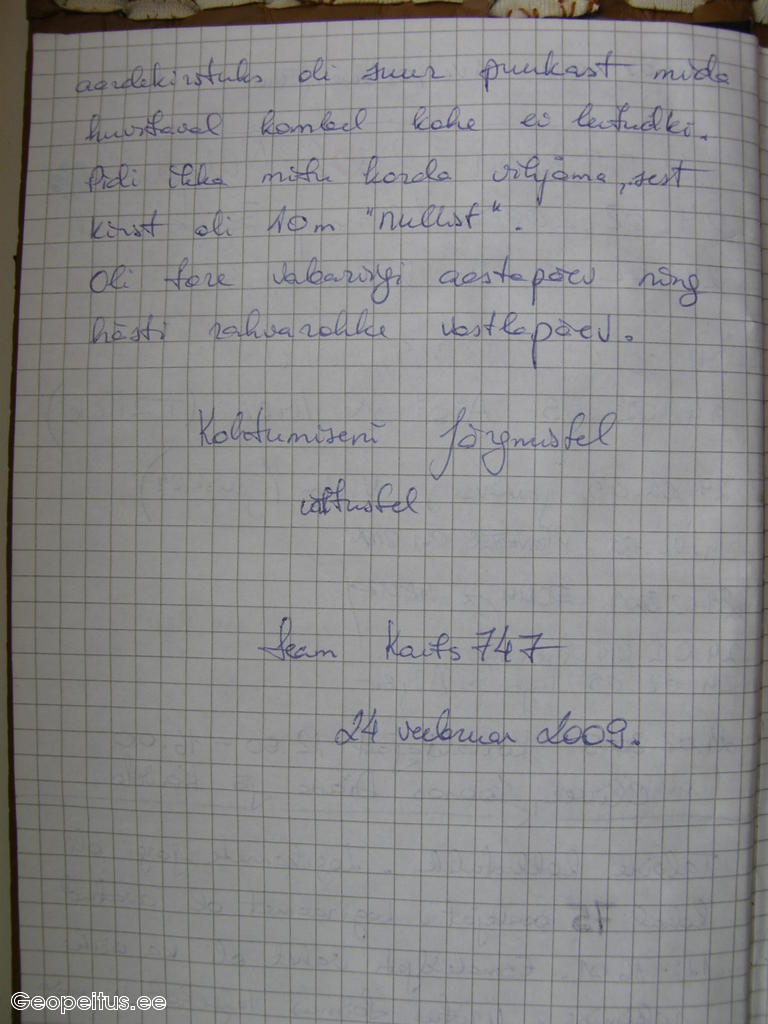 aardekirstuks oli suur puukast mida
huvitaval kombel kohe ei leitudki.
Pidi ikka mitu korda viljama, sest
kirst oli 10m "nullist".
Oli tore vabariigi aastapäev ning
hästi rahvarohke vastlapäev.
Kohtumiseni järgmistel
üritustel
team Kaits 747
24 veebruar 2009.
75
Geopeitus.ee